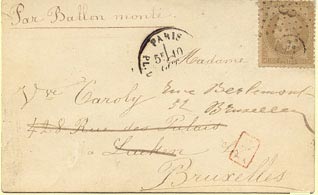 Par Ballon monté
PARIS
Madame
Vve Caroly rue Berlemont
32 Bruxelles
428 Rue des Palais
à Laeken
Bruxelles